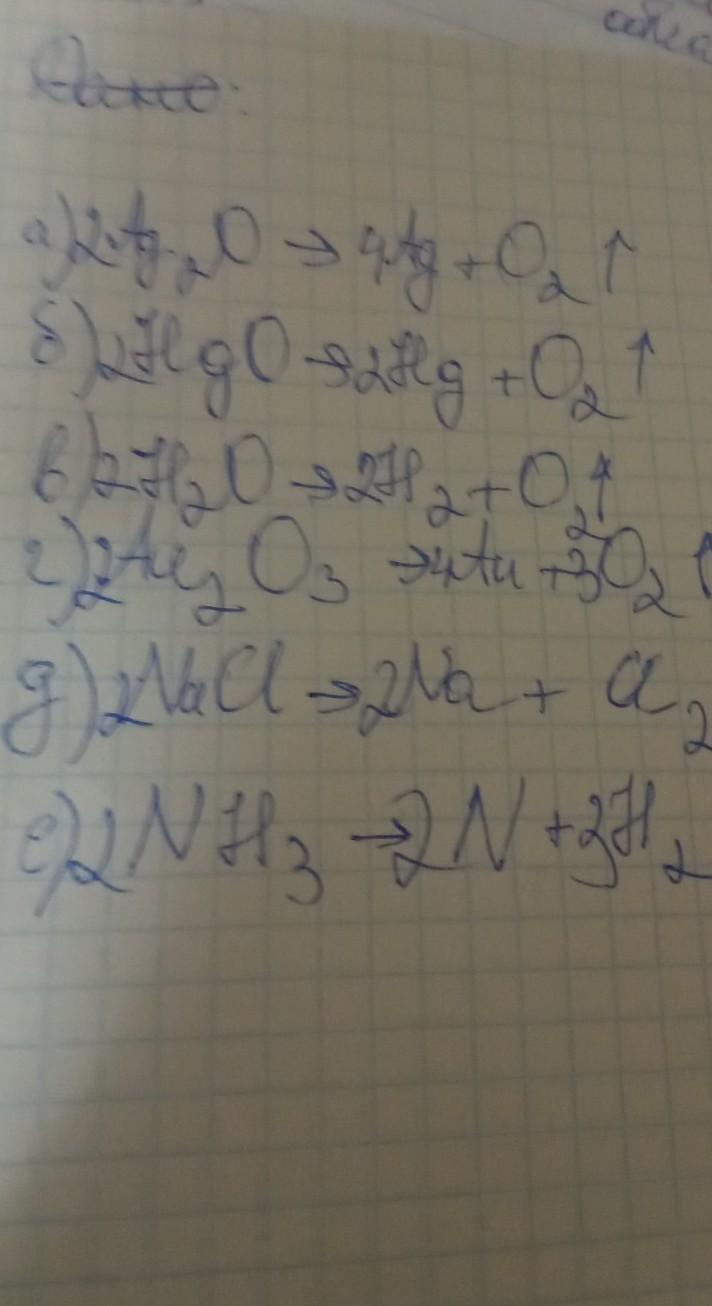 а) 2Ag₂O → 4Ag + O₂ ↑
б) 2HgO → 2Hg + O₂ ↑
в) 2H₂O → 2H₂ + O₂ ↑
г) 2Au₂O₃ → 4Au + 3O₂ ↑
д) 2NaCl → 2Na + Cl₂
е) 2NH₃ → 2N + 3H₂